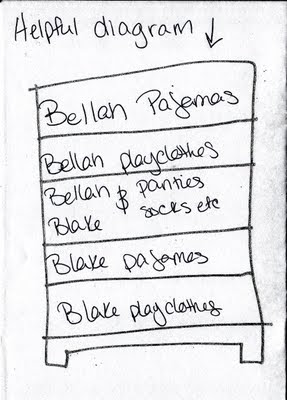 Helpful diagram ↓
Bellah Pajamas
Bellah playclothes
Bellah & panties
Blake socks etc
Blake pajamas
Blake playclothes